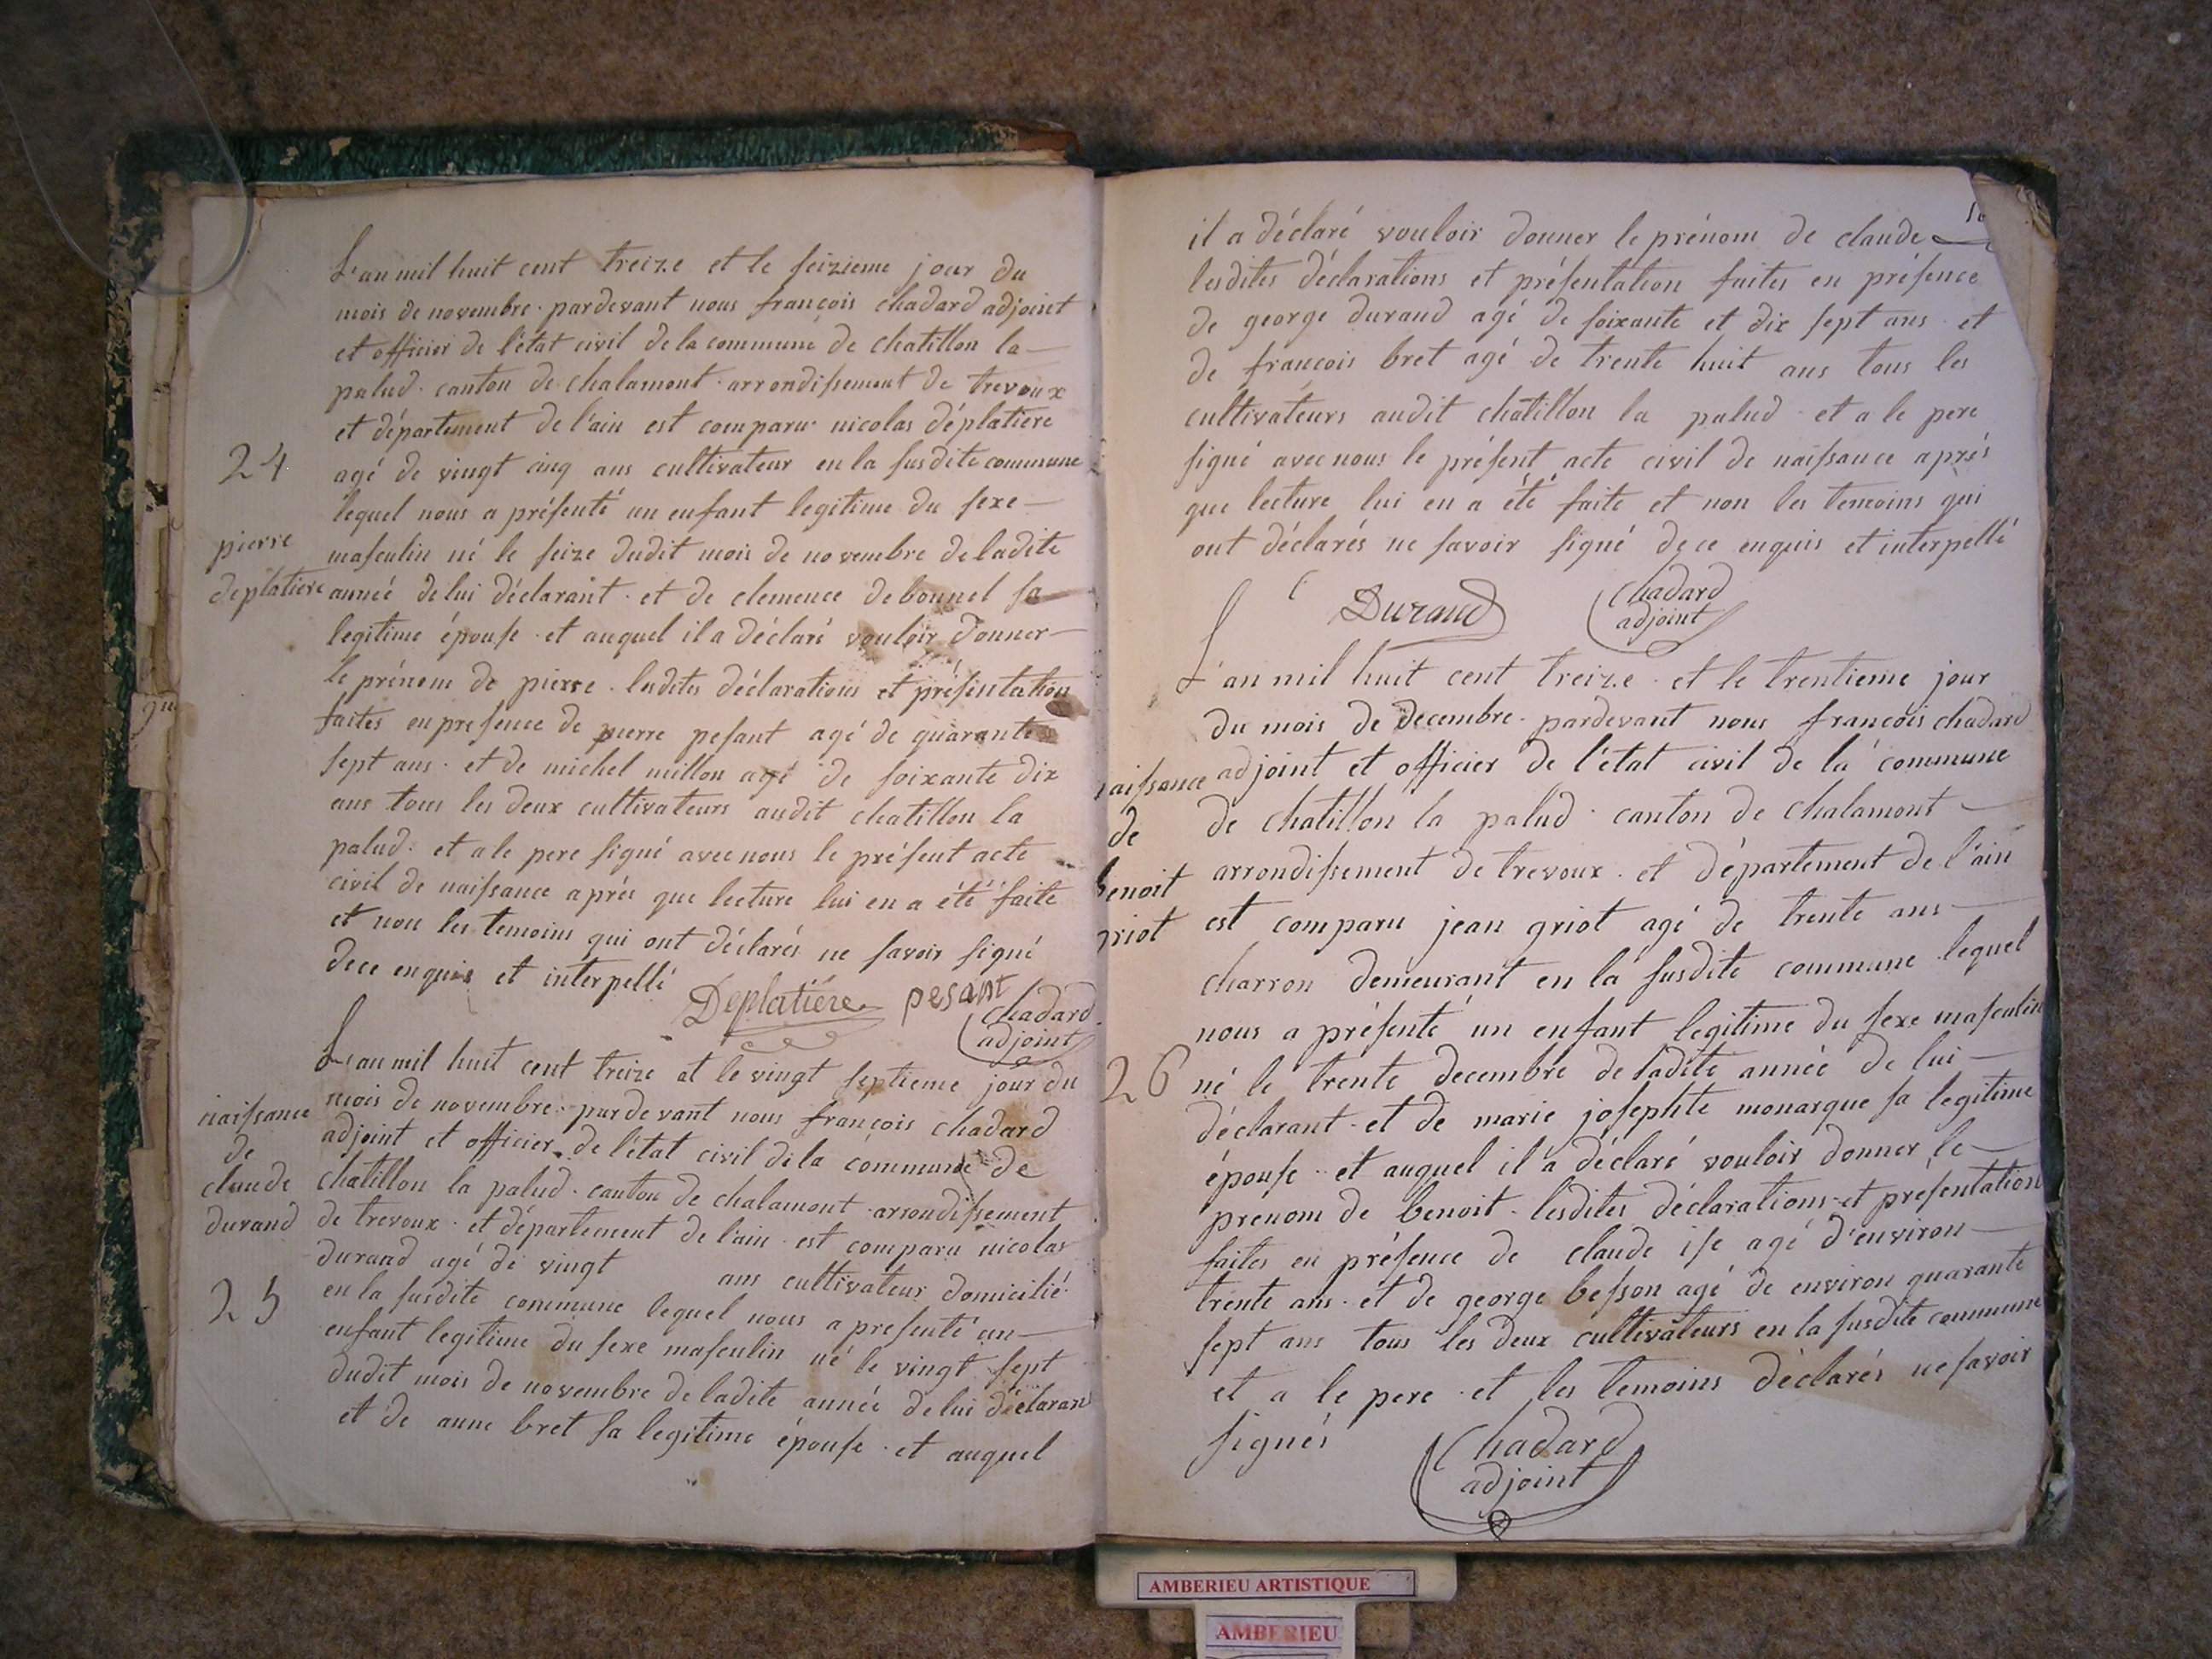 L'an mil huit cent treize et le seizieme jour du
mois de novembre. pardevant nous françois chadard adjoint
et officier de l'état civil de la commune de chatillon la
palud. canton de chalamont. arrondissement de trevoux
et département de l'ain est comparu nicolas déplatiere
24
agé de vingt cinq ans cultivateur en la susdite commune
lequel nous a présenté un enfant legitime du sexe
pierre
deplatiere
masculin né le seize dudit mois de novembre de ladite
année de lui déclarant. et de clemence debonnel sa
legitime épouse. et auquel il a déclaré vouloir donner
le prénom de pierre. lesdites déclarations et présentation
faites en presence de pierre pesant agé de quarante
sept ans. et de michel millon agé de soixante dix
ans tous les deux cultivateurs audit chatillon la
palud. et a le pere signé avec nous le présent acte
civil de naissance aprés que lecture lui en a été faite
et non les temoins qui ont déclarés ne savoir signé
de ce enquis et interpellé
Deplatiére pesant
Chadard
adjoint
L'an mil huit cent treize et le vingt septieme jour du
naissance
de
claude
durand
25
mois de novembre. pardevant nous françois chadard
adjoint et officier de l'état civil de la commune de
chatillon la palud. canton de chalamont. arrondissement
de trevoux. et département de l'ain. est comparu nicolas
durand agé de vingt ans cultivateur domicilié
en la susdite commune lequel nous a presenté un
enfant legitime du sexe masculin né le vingt sept
dudit mois de novembre de ladite année de lui déclarant
et de anne bret sa legitime épouse. et auquel
il a déclaré vouloir donner le prénom de claude
lesdites déclarations et présentation faites en présence
de george durand agé de soixante et dix sept ans et
de françois bret agé de trente huit ans tous les
cultivateurs audit chatillon la palud. et a le pere
signé avec nous le présent acte civil de naissance aprés
que lecture lui en a été faite et non les temoins qui
ont déclarés ne savoir signé de ce enquis et interpellé
Durand
Chadard
adjoint
L'an mil huit cent treize. et le trentieme jour
du mois de decembre. pardevant nous françois chadard
naissance
de
benoit
griot
adjoint et officier de l'état civil de la commune
de chatillon la palud. canton de chalamont
arrondissement de trevoux. et département de l'ain
est comparu jean griot agé de trente ans
charron demeurant en la susdite commune lequel
nous a présenté un enfant legitime du sexe masculin
26
né le trente decembre de ladite année de lui
déclarant. et de marie josephte monarque sa legitime
épouse. et auquel il a déclaré vouloir donner le
prenom de benoit. lesdites déclarations et présentation
faites en présence de claude ise agé d'environ
trente ans. et de george besson agé de environ quarante
sept ans tous les deux cultivateurs en la susdite commune
et a le pere. et les temoins déclarés ne savoir
signés
Chadard
adjoint
AMBERIEU ARTISTIQUE
AMBERIEU